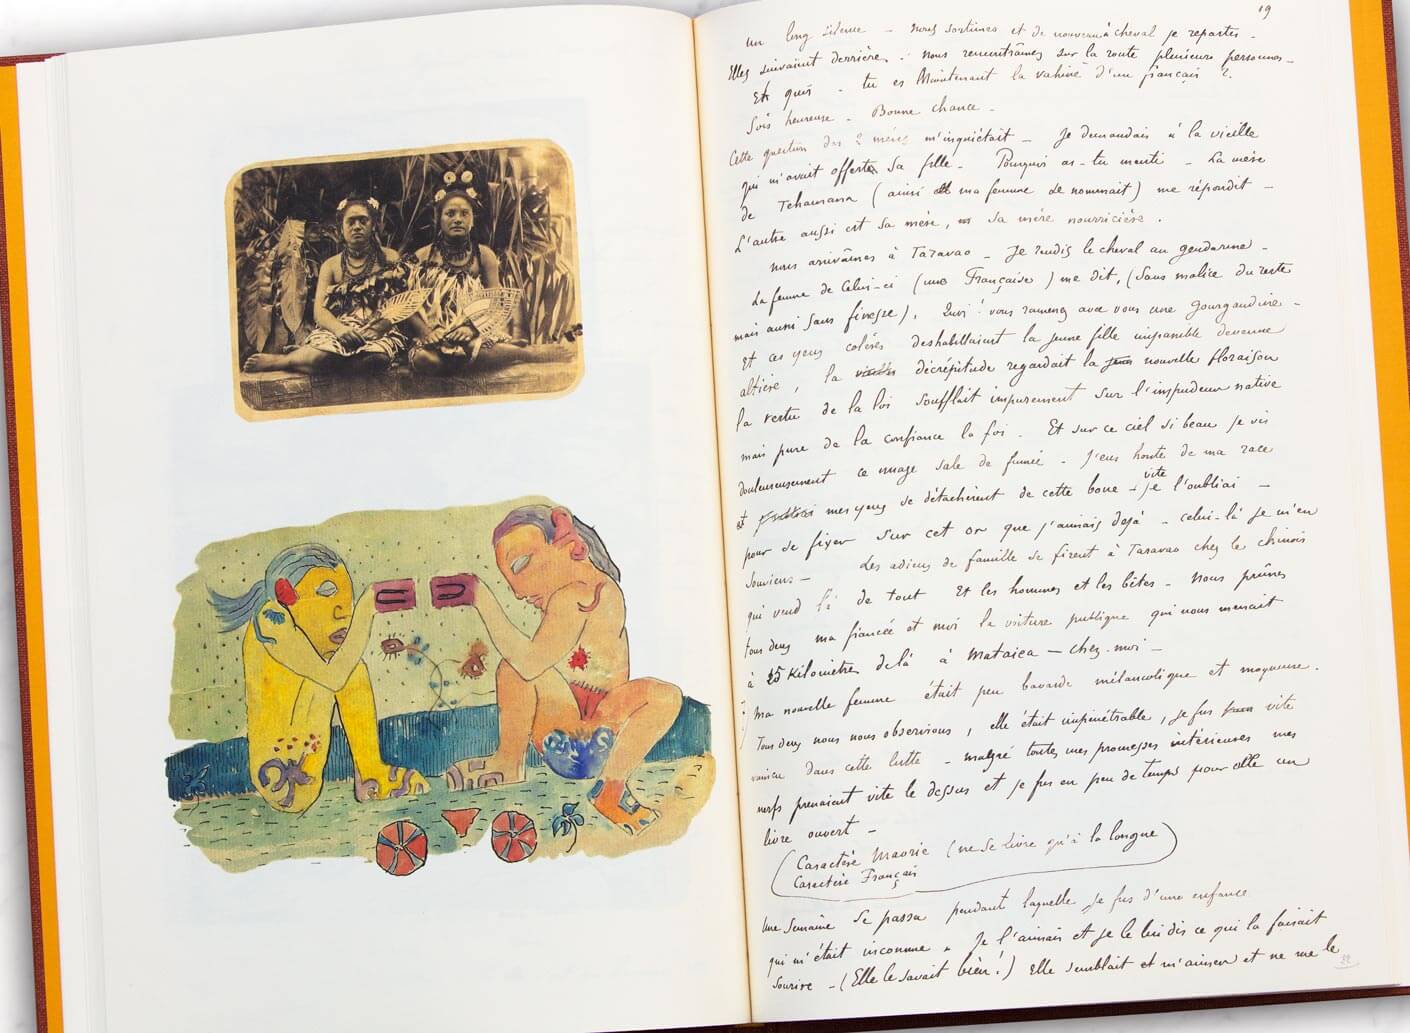 19
un long silence — nous sortimes et de nouveau à cheval je repartis —
Elles suivaient derrière. Nous rencontrâmes sur la route plusieurs personnes —
Eh quoi — tu es Maintenant la vahine d'un français ?
Sois heureuse — Bonne chance —
Cette question des 2 mères m'inquiétait — Je demandais à la vieille
qui m'avait offerte sa fille — Pourquoi as-tu menti — La mère
de Tehamana (ainsi ma femme se nommait) me répondit —
L'autre aussi est sa mère, sa mère nourricière.
nous arrivâmes à Taravao — Je rendis le cheval au gendarme —
La femme de celui-ci (une Française) me dit, (sans malice du reste
mais aussi sans finesse), Quoi! vous ramenez avec vous une gourgandine —
Et ces yeux colères deshabillaient la jeune fille impassible devenue
altière, la vieille décrépitude regardait la nouvelle floraison
la vertu de la loi soufflait impurement sur l'impudeur native
mais pure de la confiance la foi — Et sur ce ciel si beau je vis
douloureusement ce nuage sale de fumée — J'eus honte de ma race
vite
et mes yeux se détachèrent de cette boue — je l'oubliai —
pour se fixer sur cet or que j'aimais déjà — celui-là je m'en
souviens — Les adieux de famille se firent à Taravao chez le chinois
qui vend là de tout Et les hommes et les bêtes — Nous prîmes
tous deux ma fiancée et moi la voiture publique qui nous menait
à 25 kilomètres de là à Mataiea — chez moi —
Ma nouvelle femme était peu bavarde mélancolique et moqueuse.
Tous deux nous nous observions, elle était impénétrable, je fus vite
vaincu dans cette lutte — malgré toutes mes promesses intérieures mes
nerfs prenaient vite le dessus et je fus en peu de temps pour elle un
livre ouvert —
(Caractère Maorie (ne se livre qu'à la longue)
Caractère Français
Une semaine se passa pendant laquelle je fus d'une enfance
qui m'était inconnue. Je l'aimais et je le lui dis ce qui la faisait
sourire — (Elle le savait bien!) Elle semblait et m'aimer et ne me le